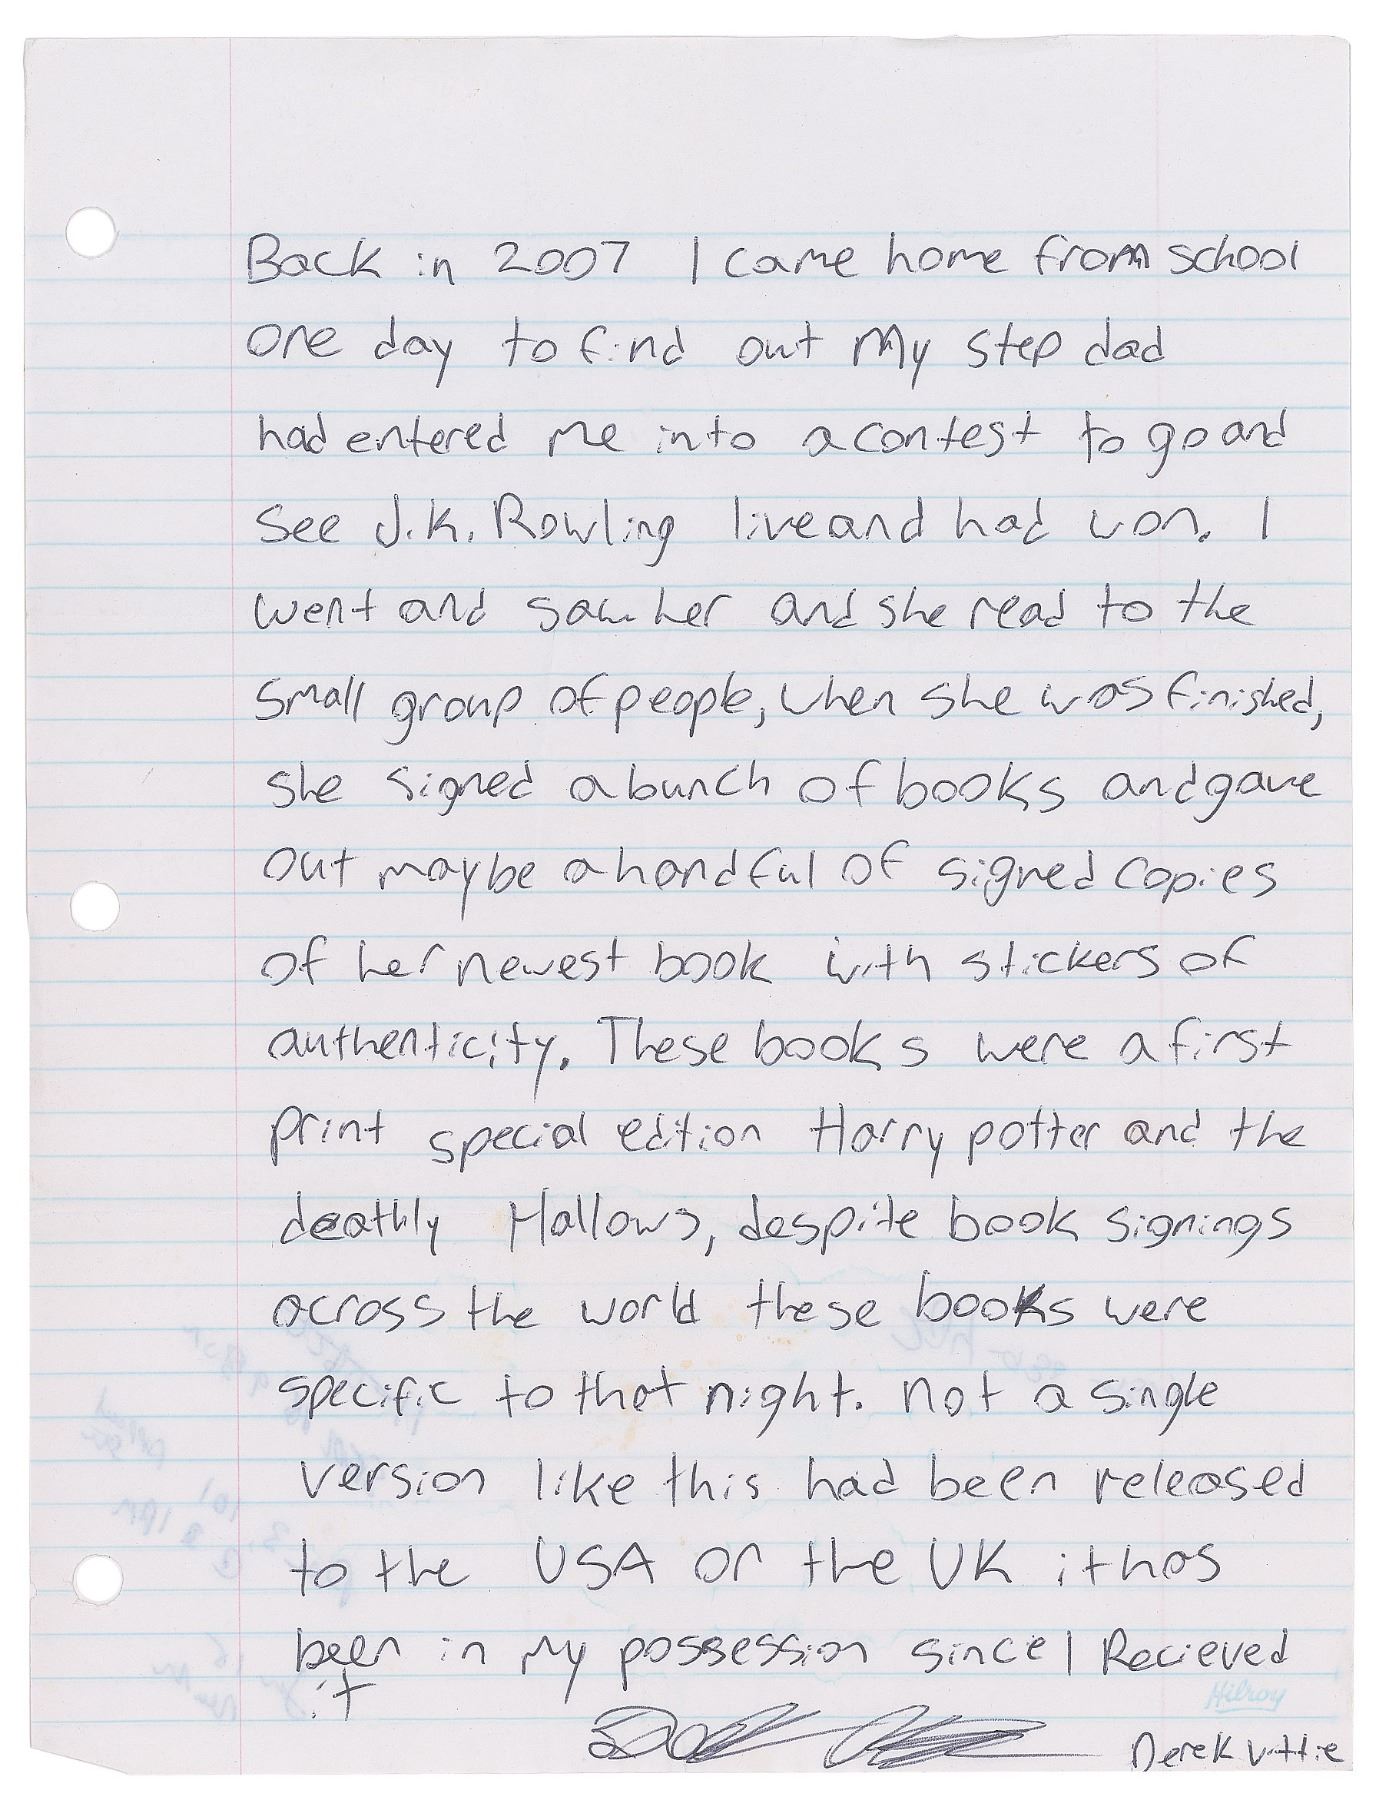 Back in 2007 I came home from school
one day to find out my step dad
had entered me into a contest to go and
see J.K. Rowling live and had won. I
went and saw her and she read to the
small group of people, when she was finished,
she signed a bunch of books and gave
out maybe a handful of signed copies
of her newest book with stickers of
authenticity. These books were a first
print special edition Harry potter and the
deathly Hallows, despite book signings
across the world these books were
specific to that night. not a single
version like this had been released
to the USA or the UK it has
been in my possession since I Recieved
it
Hilroy
Derek Vittie